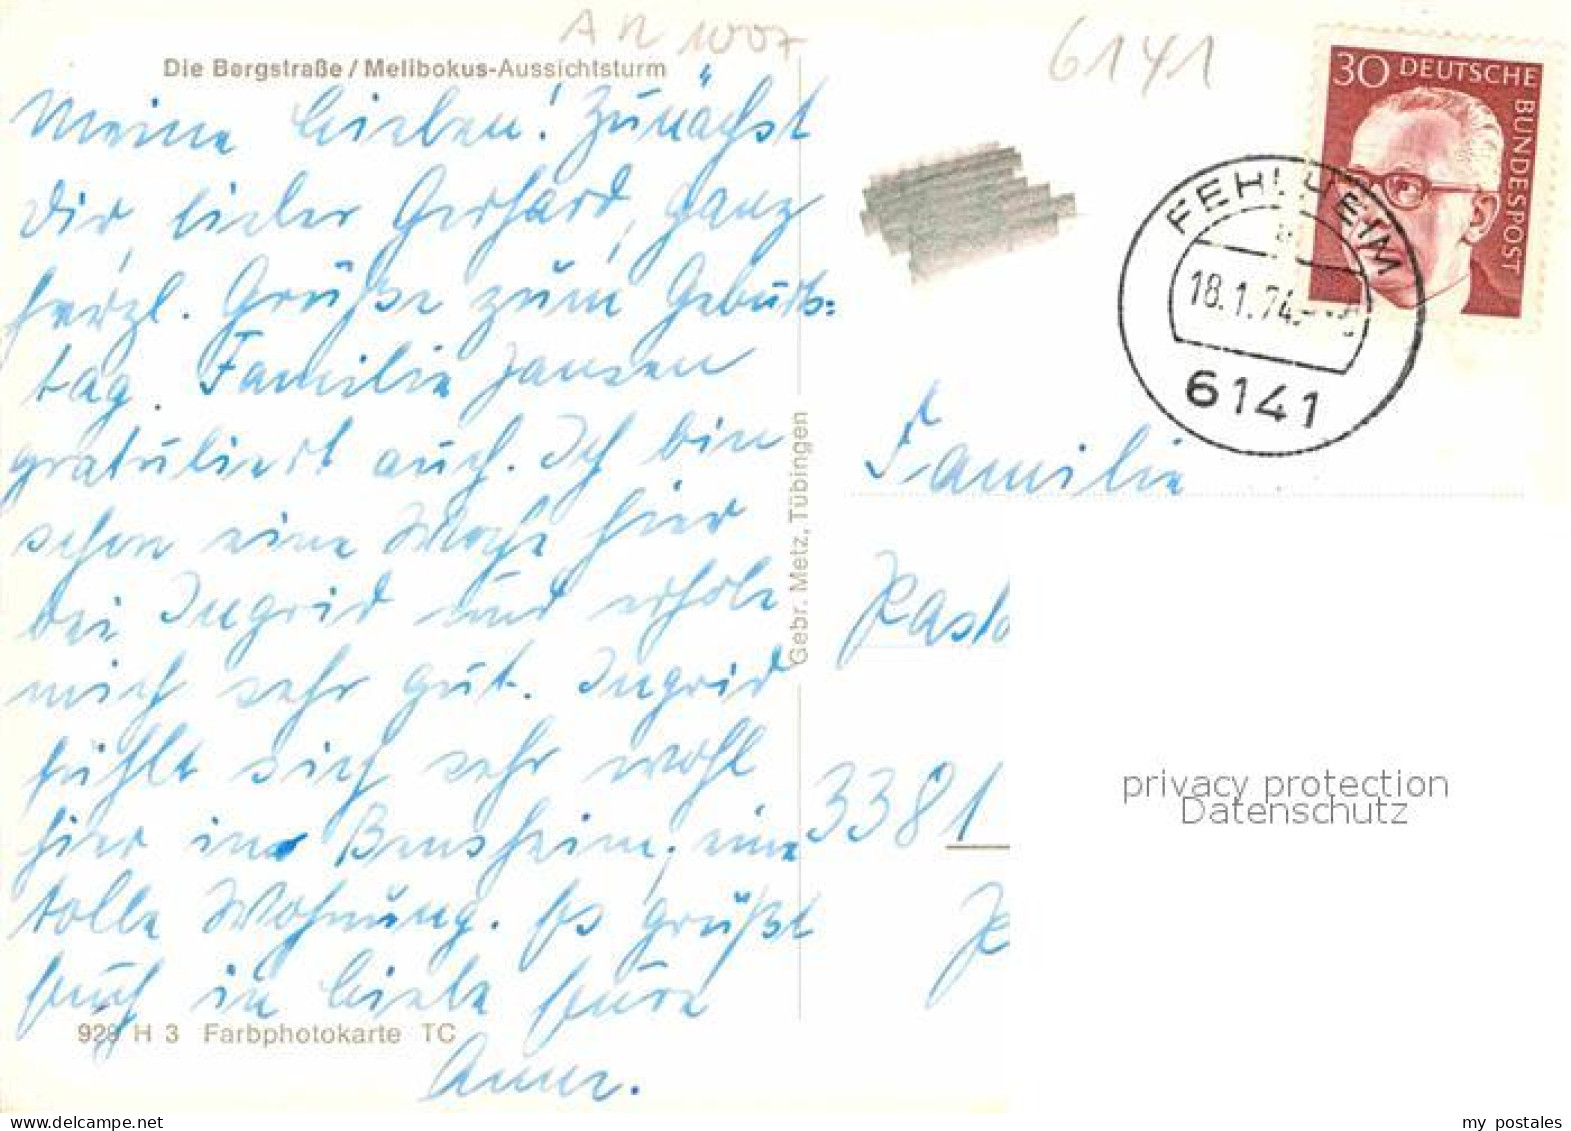 A R 1007
6141
Die Bergstraße / Melibokus-Aussichtsturm
30 DEUTSCHE
BUNDESPOST
FEHLHEIM
a
18.1.74
6141
Meine Lieben! Zunächst
Dir, lieber Gerhard, ganz
herzl. Grüße zum Geburts=
tag. Familie Jansen
gratuliert auch. Ich bin
schon eine Woche hier
bei Ingrid und erhole
mich sehr gut. Ingrid
fühlt sich sehr wohl
hier in Bensheim, eine
tolle Wohnung. Es grüßt
Euch in Liebe Eure
Gebr. Metz, Tübingen
Familie
3381
privacy protection
Datenschutz
H 3 Farbphotokarte TC
my postales